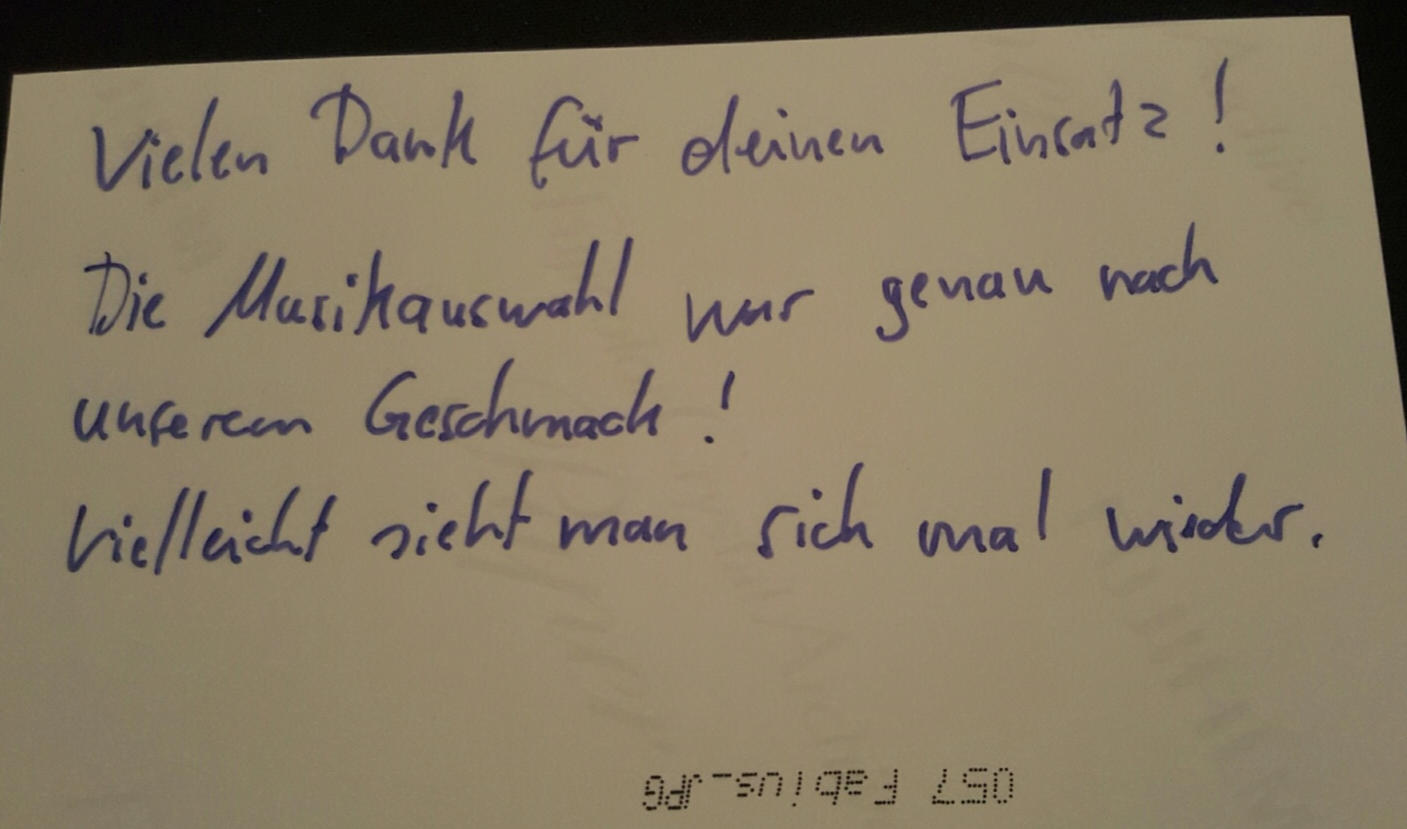 Vielen Dank für deinen Einsatz!
Die Musikauswahl war genau nach
unserem Geschmack!
Vielleicht sieht man sich mal wieder.
057 Fabius_JPG